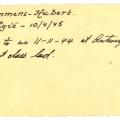 mmens - Hubert.
gië - 10/4/45
to us 11-11-44 at Antwerp
t class lad.